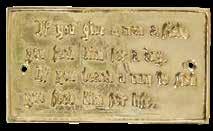 If you give a man a fish,
you feed him for a day.
If you teach a man to fish
you feed him for life.